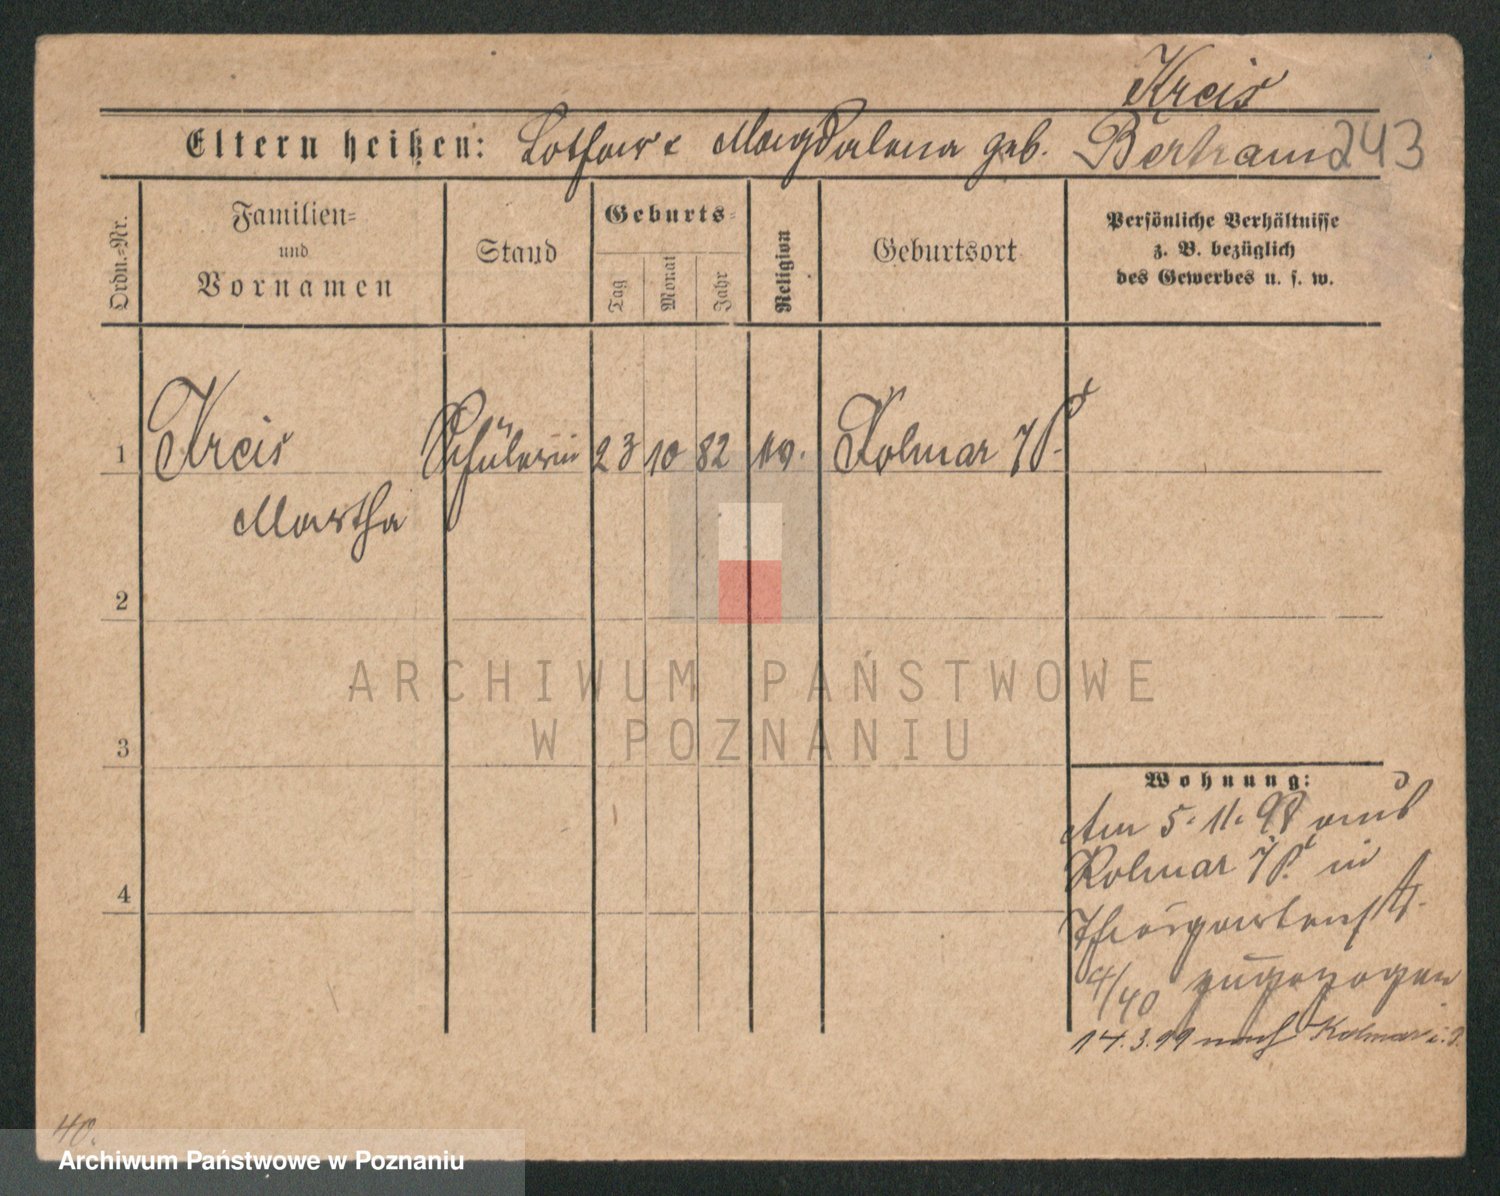 Kreis
Eltern heißen: Lothar & Magdalena geb. Bertram 243
Ordn.-Nr.
Familien-
und
Vornamen
Stand
Geburts-
Tag
Monat
Jahr
Religion
Geburtsort
Persönliche Verhältnisse
z. B. bezüglich
des Gewerbes u. s. w.
1 Kreis Schülerin 23 10 82 ev. Kolmar i/P.
Martha
2
3
4
Wohnung:
Am 5. 11. 98 aus
Kolmar i/P. in
Thiergartenstr.
4/40 zugezogen
14.3.99 nach Kolmar i. P.
40.
ARCHIWUM PAŃSTWOWE
W POZNANIU
Archiwum Państwowe w Poznaniu